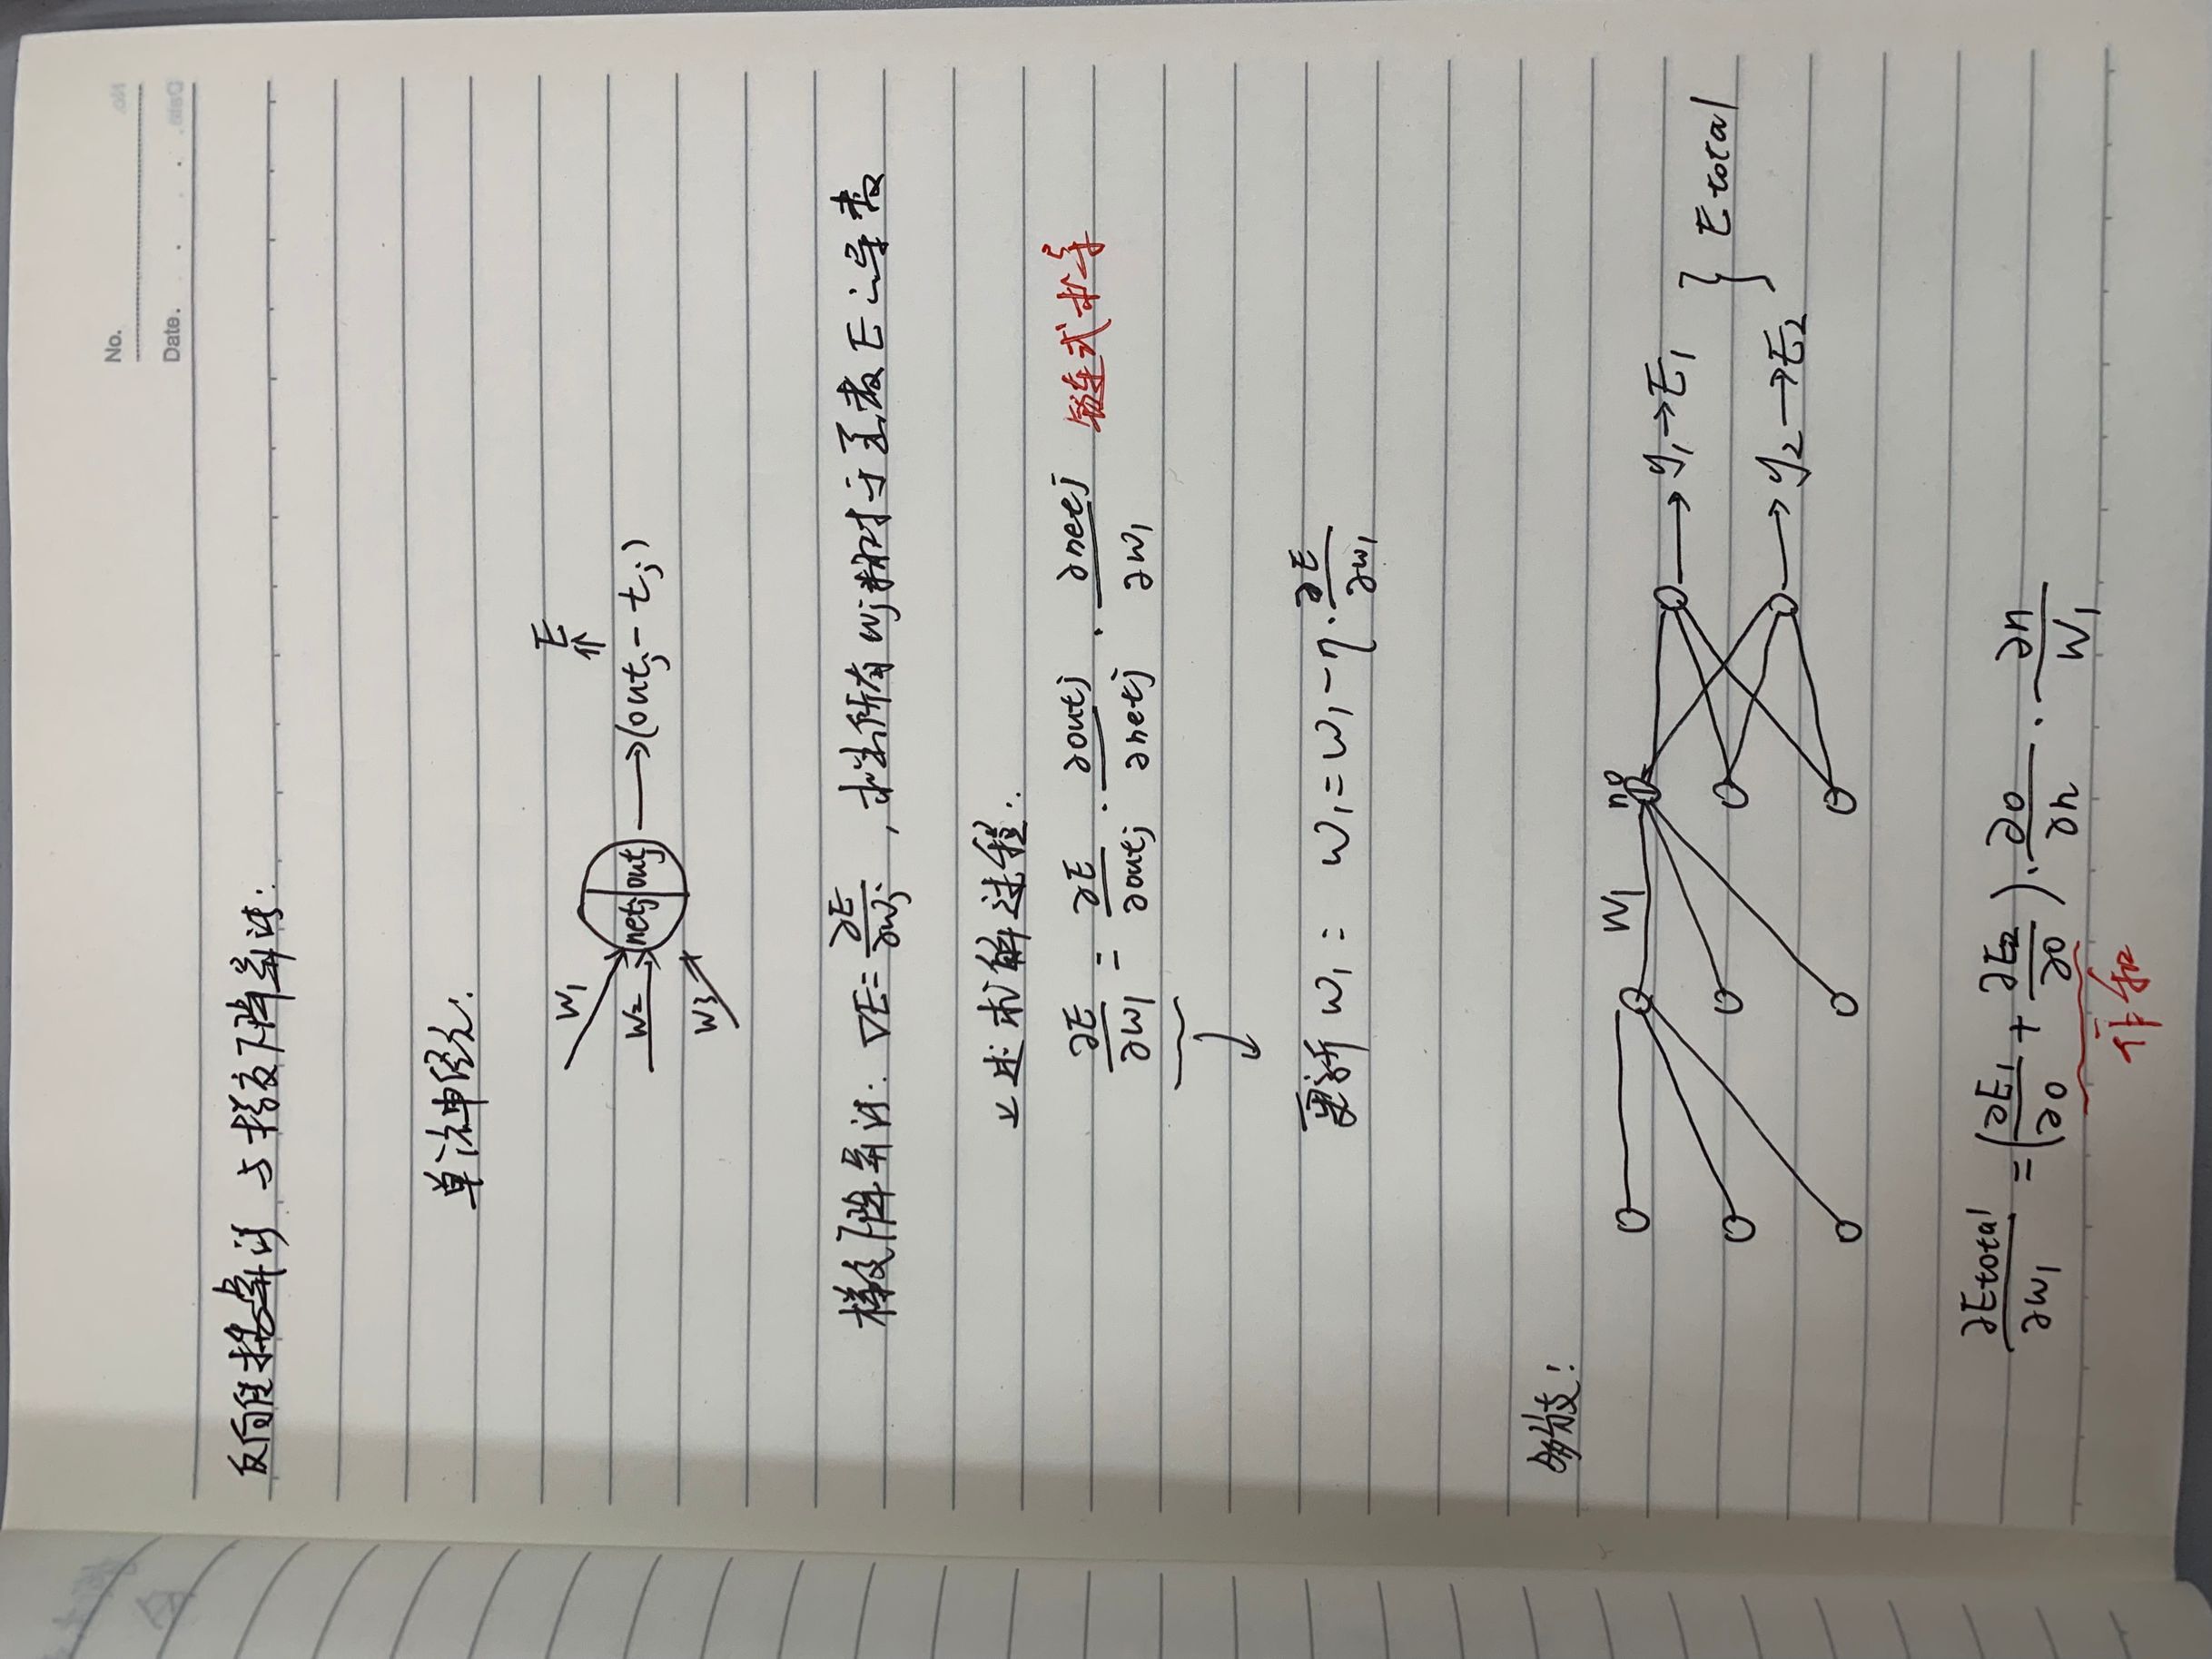 No.
Date.
反向传播算法与梯度下降算法:
单个神经元:
E
W1
W2
W3
netj outj → (outj - tj)
梯度下降算法: ∇E = ∂E/∂wj, 求出所有wj相对于函数E的导数
上述求解过程:
∂E/∂w1 = ∂E/∂outj · ∂outj/∂netj · ∂netj/∂w1 链式求导
更新 w1: w1 = w1 - η · ∂E/∂w1
多分支:
W1 n o → y1 → E1
→ y2 → E2
} Etotal
∂Etotal/∂w1 = (∂E1/∂o + ∂E2/∂o) · ∂o/∂n · ∂n/W1